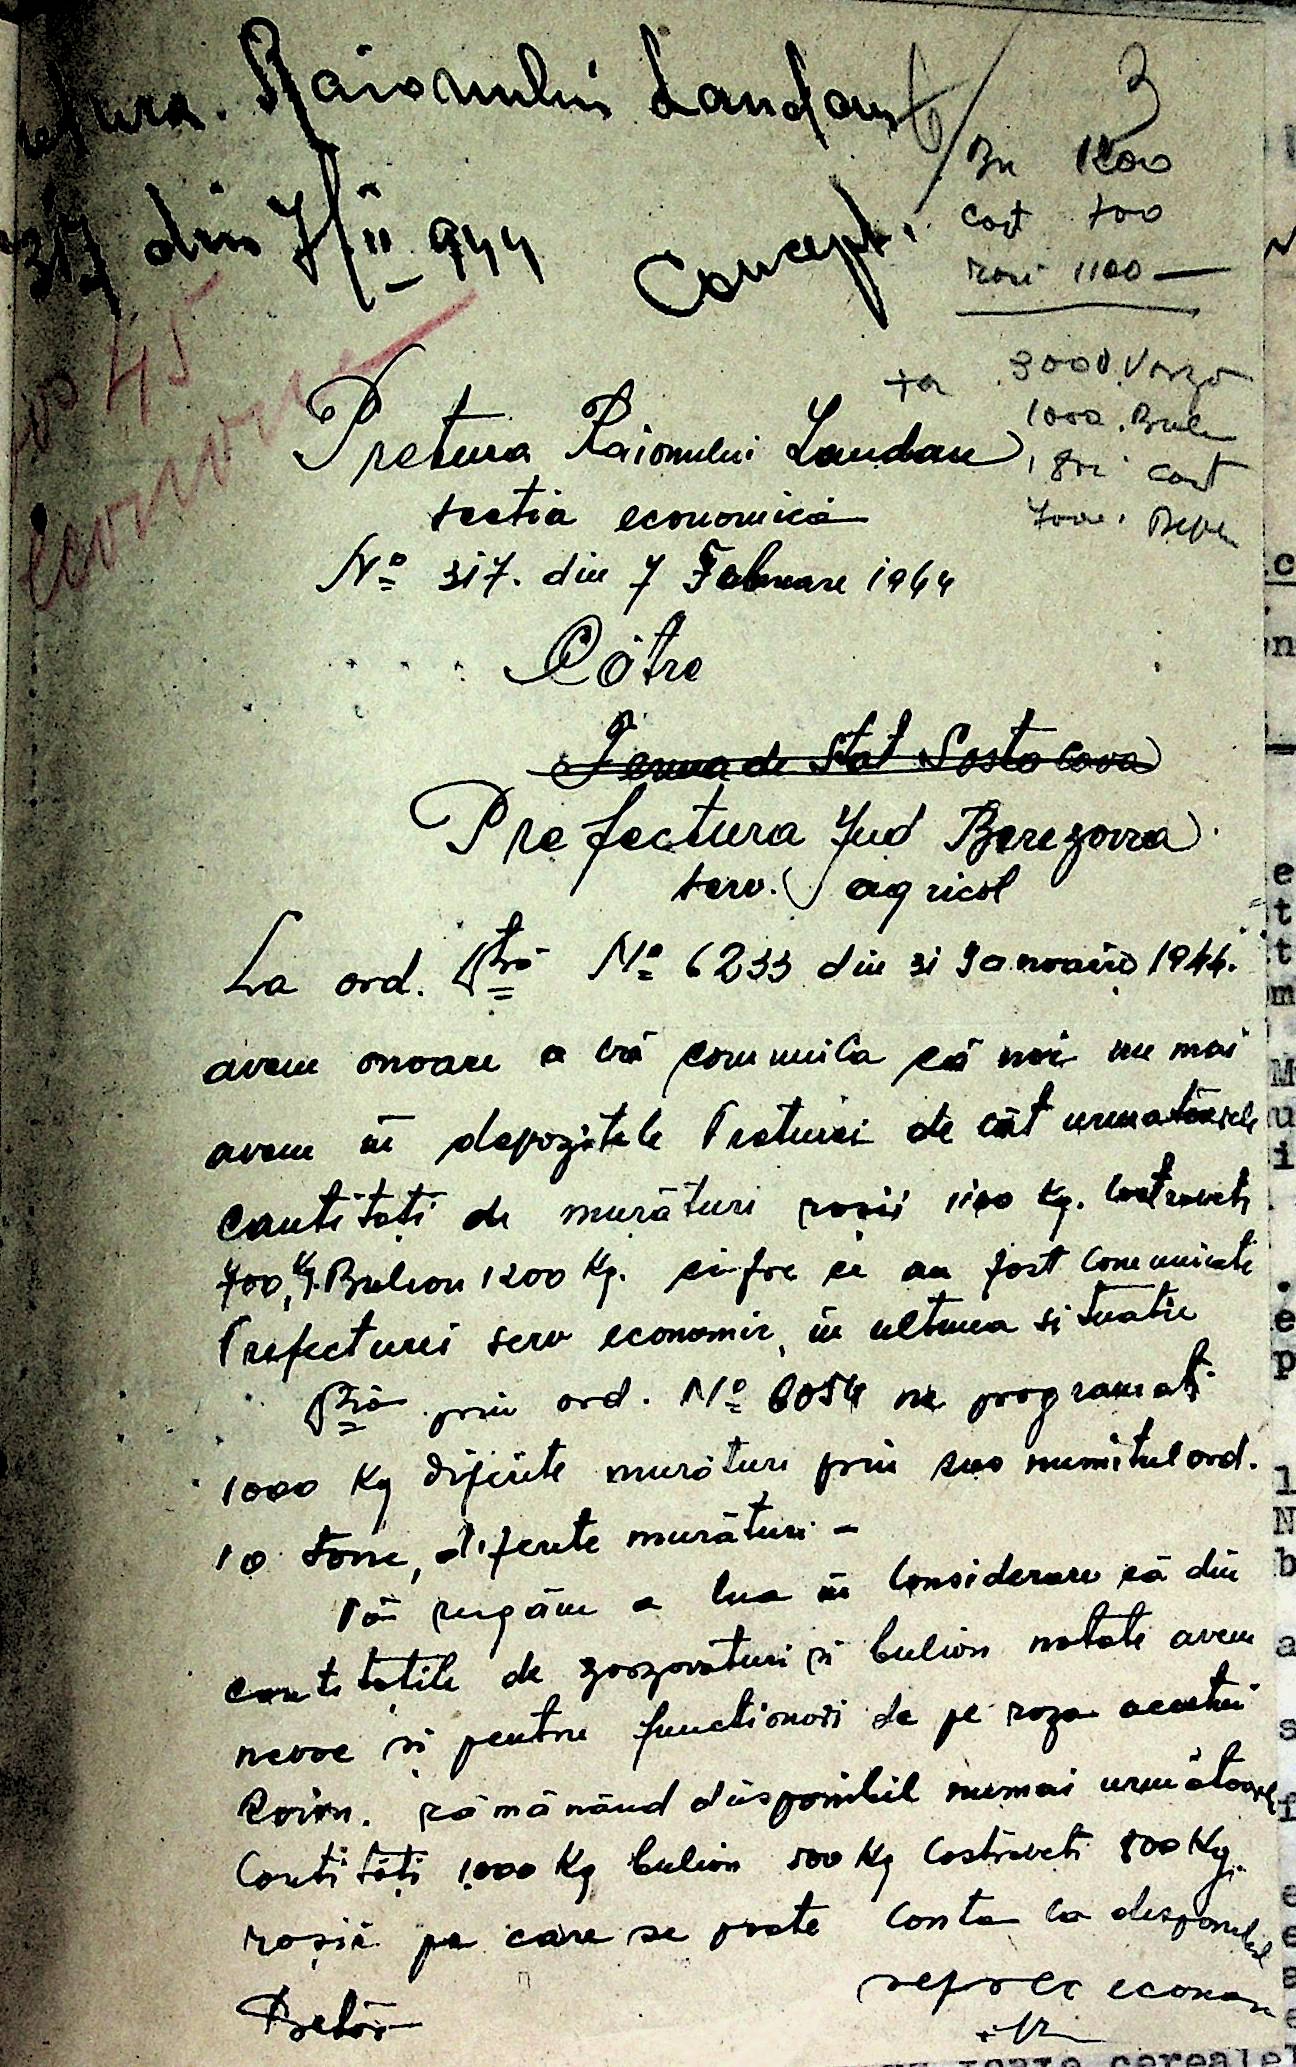 Raionului Landau
317 din 7/II 944
Concept.
3
Bu 1200
cast 700
rosii 1100 —
45
3000. Varză
1000. Buli
cast
Pretura Raionului Landau
sectia economică
No 317. din 7 Februare 1944
Către
Ferma de Stat Sosto cova
Prefectura Jud Berezovca
serv. agricol
La ord. No 6233 din 31 Ianuarie 1944.
avem onoare a vă comunica că noi nu mai
avem în depozitele Preturei de cât următoarele
cantităti de murături rosii 1100 Kg. Castraveti
700 Kg. Bulion 1200 Kg. cifre ce au fost comunicate
Prefecturei serv economic, în ultima situatie
prin ord. No 6054 ne programati
1000 Kg diferite murături prin sus numitul ord.
10 tone, diferite murături –
Vă rugăm a lua în considerare că din
cantitătile de zarzavaturi si bulion notate avem
nevoe si pentru functionari de pe raza acestui
Raion. rămânând disponibil numai următoarele
Cantităti 1000 Kg bulion 500 Kg Castraveti 800 Kg.
rosii pe care se poate conta ca disponibil
Pretor
econom